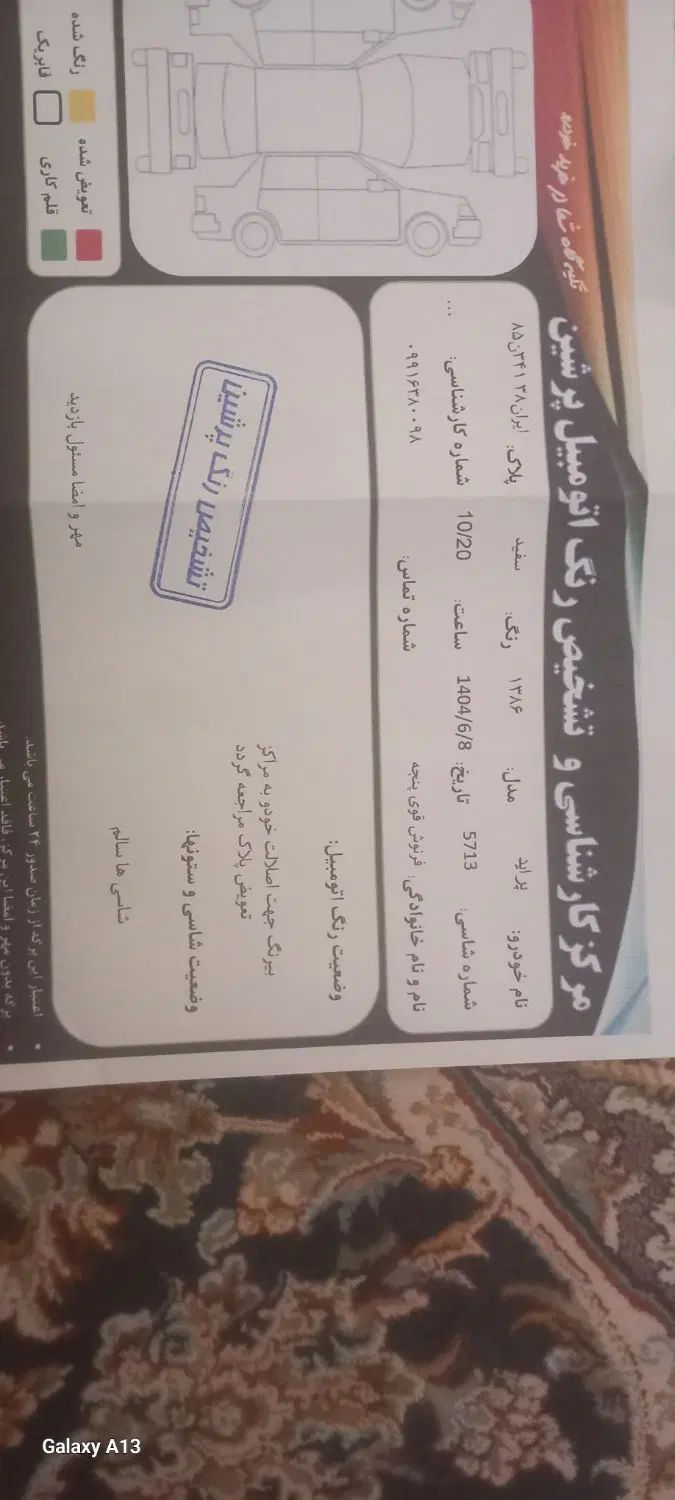 تکیه گاه شما در خرید خودرو
مرکز کارشناسی و تشخیص رنگ اتومبیل پرشین
نام خودرو: پراید مدل: ۱۳۸۶ رنگ: سفید پلاک: ایران۳۸ ۳۴۱ن۸۵
شماره شاسی: 5713 تاریخ: 1404/6/8 ساعت: 10/20 شماره کارشناسی: ...
نام و نام خانوادگی: فرنوش قوی پنجه شماره تماس: ۰۹۹۱۶۳۸۰۰۹۸
وضعیت رنگ اتومبیل:
بیرنگ جهت اصلالت خودو به مراکز
تعویض پلاک مراجعه گردد
وضعیت شاسی و ستونها:
شاسی ها سالم
تشخیص رنگ پرشین
مهر و امضا مسئول بازدید
رنگ شده تعویض شده
فابریک قلم کاری
اعتبار این برگه از زمان صدور ۲۴ ساعت می باشد.
برگه بدون مهر و امضا این مرکز فاقد اعتبار می باشد.
Galaxy A13